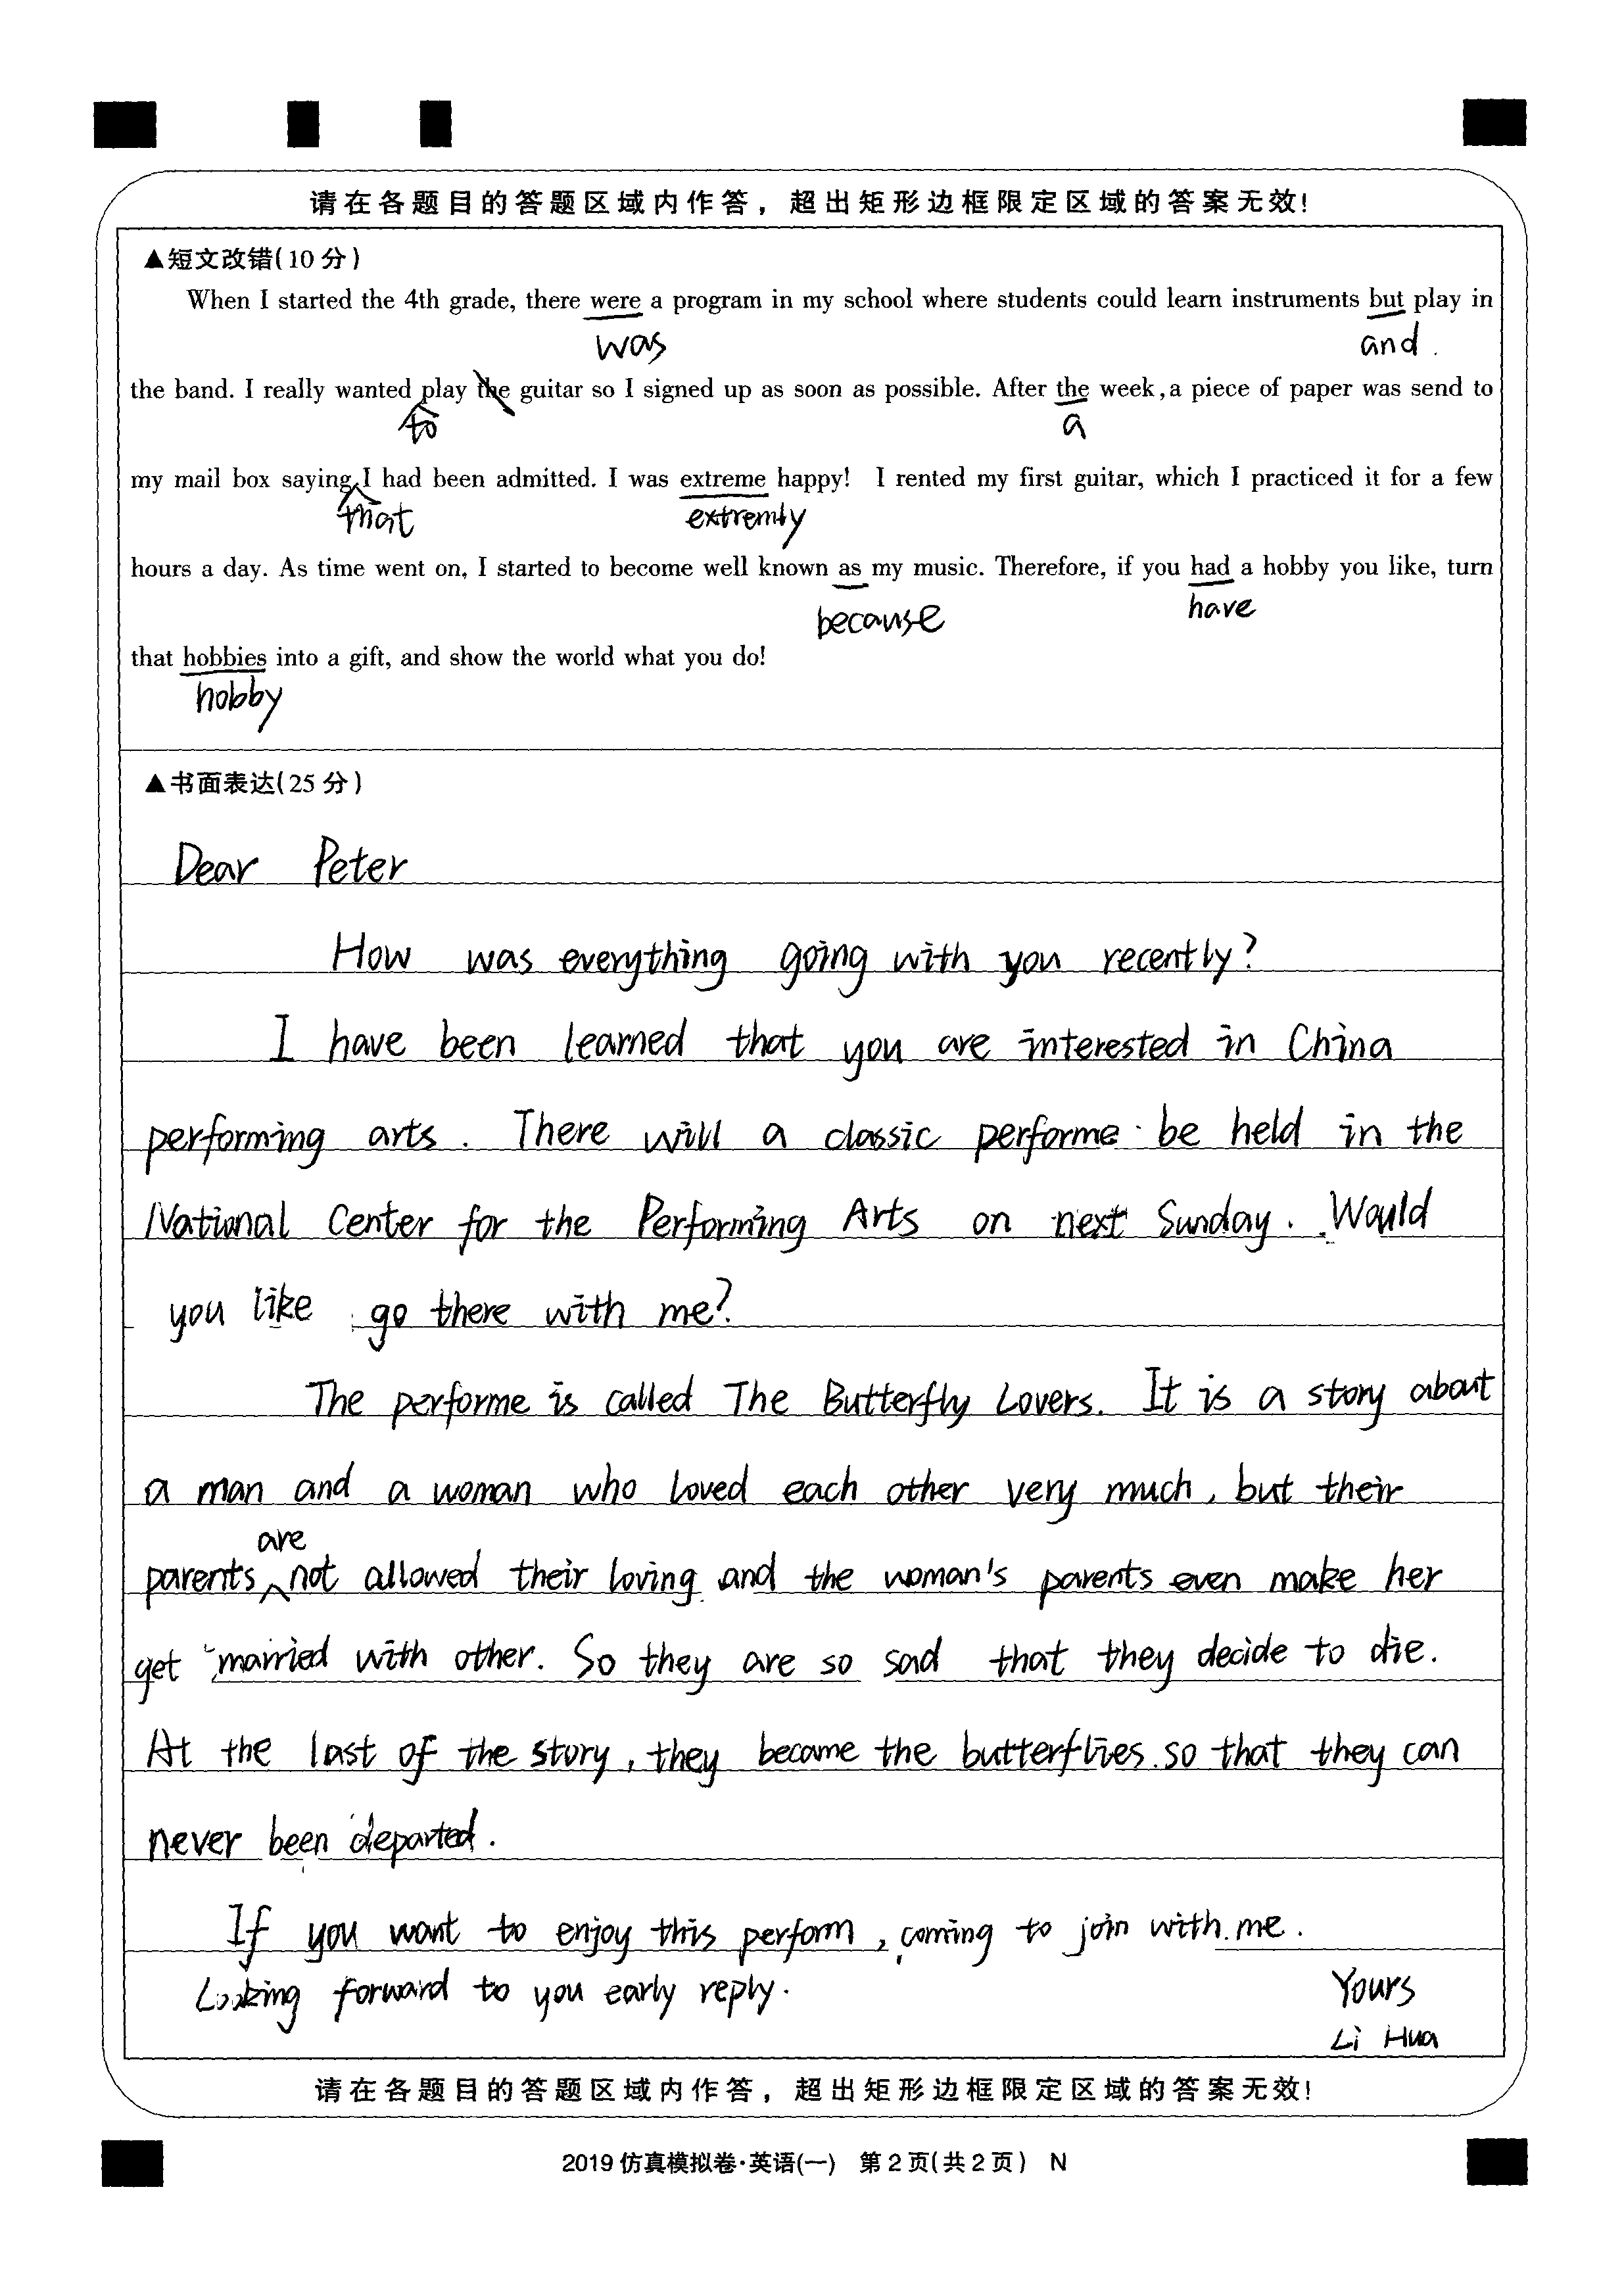 请在各题目的答题区域内作答，超出矩形边框限定区域的答案无效!
▲短文改错(10分)
When I started the 4th grade, there were a program in my school where students could learn instruments but play in
was and.
the band. I really wanted play the guitar so I signed up as soon as possible. After the week, a piece of paper was send to
to a
my mail box saying I had been admitted. I was extreme happy! I rented my first guitar, which I practiced it for a few
that extremly
hours a day. As time went on, I started to become well known as my music. Therefore, if you had a hobby you like, turn
because have
that hobbies into a gift, and show the world what you do!
hobby
▲书面表达(25分)
Dear Peter
How was everything going with you recently?
I have been learned that you are interested in China
performing arts. There will a classic performe be held in the
National Center for the Performing Arts on next Sunday. Would
you like go there with me?
The performe is called The Butterfly Lovers. It is a story about
a man and a woman who loved each other very much, but their
are
parents not allowed their loving and the woman's parents even make her
get married with other. So they are so sad that they decide to die.
At the last of the story, they become the butterflies so that they can
never been departed.
If you want to enjoy this perform, coming to join with me.
Looking forward to you early reply.
Yours
Li Hua
请在各题目的答题区域内作答，超出矩形边框限定区域的答案无效!
2019仿真模拟卷·英语(一) 第2页(共2页) N